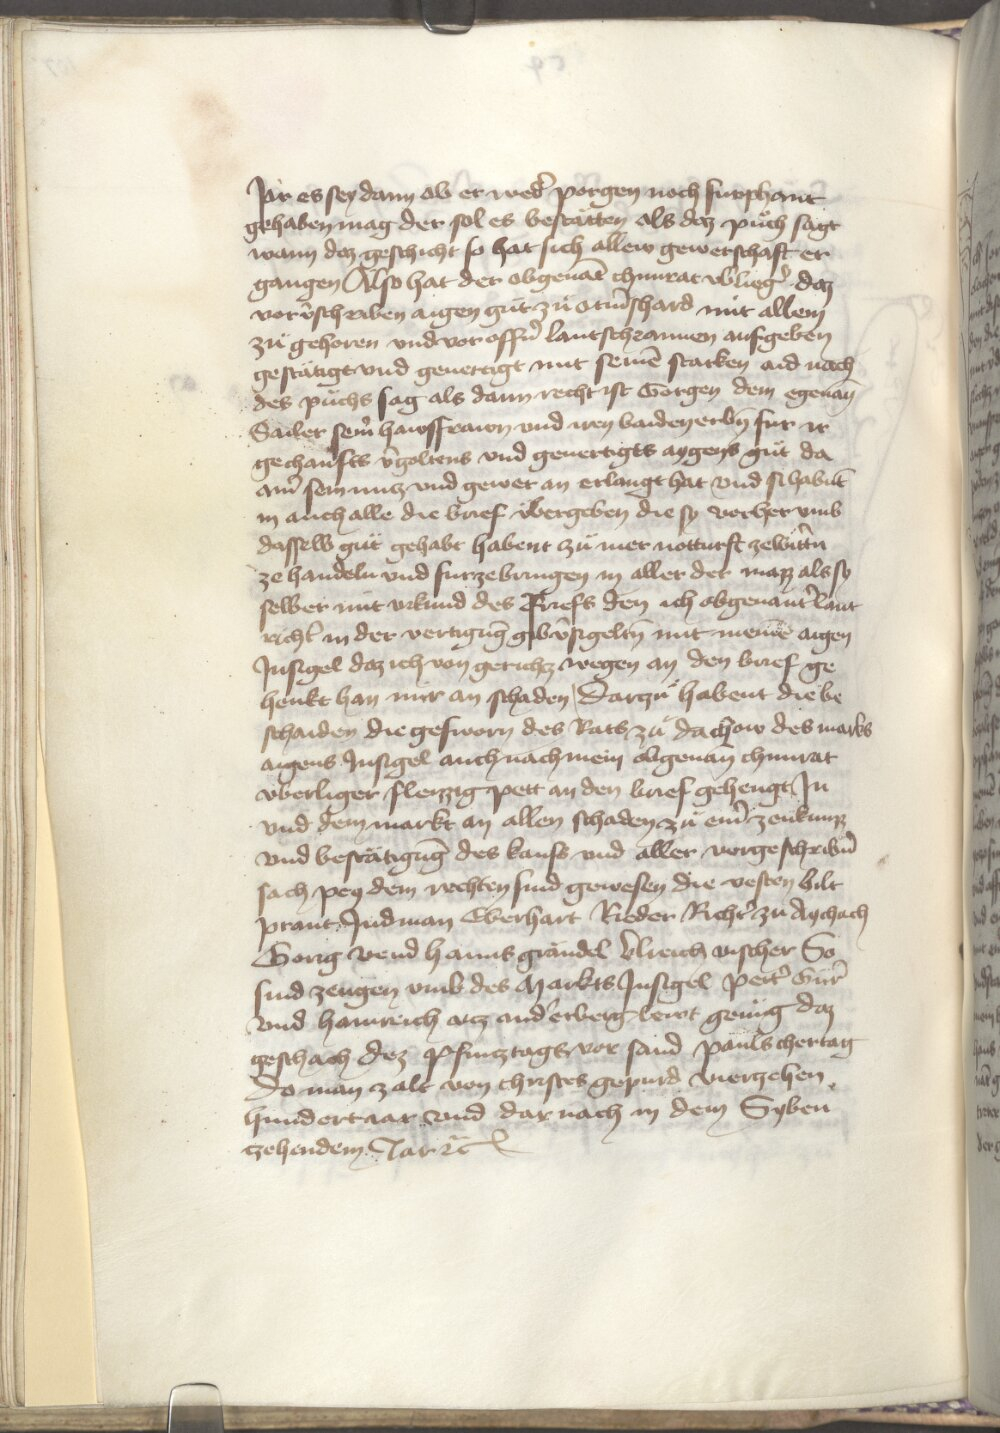 Jar es sey dann ob er wed' porgen noch furphant
gehaben mag der sol es bestätten als daz puch sagt
wann daz geschicht so hat sich allew gewerschaft er
gangen Also hat der obgenāt chunrat daz
vorv̄schriben aigen gut zu mit allem
zu gehoren vnd vor offn̄ lantschrannen aufgeben
gestätigt vnd geuertigt mit seinē starken aid nach
des puchs sag als dann recht ist Gorgen dem egenan̄
Sailer sein' hawsffrawn vnd iren baiden erbn̄ fur ir
gechaufts v̄goltens vnd geuertigts aygens gut da
sein nucz vnd gewer an erlangt hat vnd si habnt̄
in auch alle die brief übergeben die sy vorher vmb
dasselb gut gehabt habent zu irer notturft
ze handeln vnd furzebringen in aller der mazz als sy
selber mit vrkund des briefs den ich obgenant' lant
richt' in der vertigūg gib v̄sigeltn̄ mit meinē aigen
Insigel daz ich von gerichtz wegen an den brief ge
henkt han mir an schaden Darzu habent die be
schaiden die gesworn des Rats zu dachow des markts
aigens Insigel auch nach mein obgenan̄ chunrat
vberliger fleizzig pett an den brief gehengt In
vnd dem markt an allen schaden zu ein'
vnd bestätigūg des kaufs vnd aller vorgeschribn̄
sach pey dem rechten sind gewesen die vesten hilt
prant Judman Eberhart Rieder Richt' zu Aychach
Gorig vend hanns grändel vlreich vischer So
sind zeugen vmb des Markts Insigel Peit'
vnd hainreich lewt genug daz
geschach dez Pfincztags vor sand pauls chertag
Do man zalt von christes gepurd vierzehen
hundert iar vnd dar nach in dem Syben
tzehendem Jar